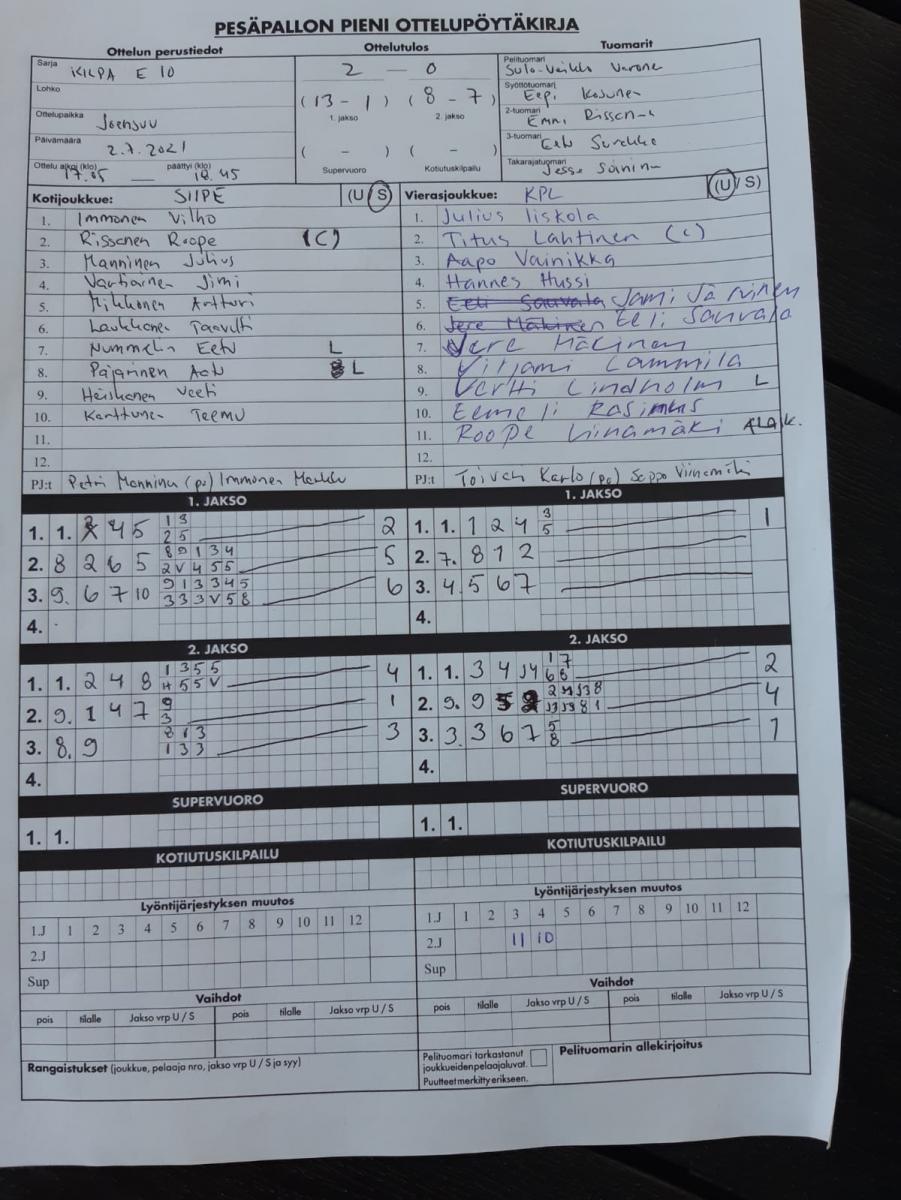 PESÄPALLON PIENI OTTELUPÖYTÄKIRJA
Ottelun perustiedot Ottelutulos Tuomarit
Sarja KILPA E 10
Lohko
Ottelupaikka Joensuu
Päivämäärä 2.7.2021
Ottelu alkoi (klo) 17.05 — päättyi (klo) 18.45
2 — 0
(13 - 1) (8 - 7)
1. jakso 2. jakso
( - ) ( - )
Supervuoro Kotiutuskilpailu
Pelituomari Sulo-Veikko
Syöttötuomari Eepi Kosunen
2-tuomari Emmi
3-tuomari Eetu
Takarajatuomari Jesse
Kotijoukkue: SIIPE (U/S)
1. Immonen Vilho
2. Rissanen Roope (C)
3. Manninen Julius
4. Vartiainen Jimi
5. Mikkonen Artturi
6. Laukkanen Taavetti
7. Nummelin Eetu L
8. Pajarinen Aatu L
9. Heiskanen Veeti
10. Karttunen Teemu
11.
12.
PJ:t Petri Manninen (pv) Immonen Markku
Vierasjoukkue: KPL (U/S)
1. Julius Iiskola
2. Titus Lahtinen (C)
3. Aapo Vainikka
4. Hannes Hussi
5. Eeli Sauvala Jami Järvinen
6. Jere Mäkinen Eeli Sauvala
7. Jere Mäkinen
8. Viljami Lammila
9. Vertti Lindholm L
10. Eemeli Rasimus
11. Roope Viinamäki
12.
PJ:t Toivon Karlo (pe) Seppo Viinamäki
1. JAKSO
1. 1. 2 4 5 1 3 2
2 5
2. 8 2 6 5 8 9 1 3 4 5
2 V 4 5 5
3. 9. 6 7 10 9 1 3 3 4 5 6
3 3 3 V 5 8
4.
1. JAKSO
1. 1. 1 2 4 3 1
5
2. 7. 8 1 2
3. 4. 5 6 7
4.
2. JAKSO
1. 1. 2 4 8 1 3 5 5 4
H 5 5 V
2. 9. 1 4 7 9 1
3
3. 8. 9 8 1 3 3
1 3 3
4.
2. JAKSO
1. 1. 3 4 J4 1 7 2
6 8
2. 9. 9 4
3. 3. 3 6 7 5 1
8
4.
SUPERVUORO
1. 1.
SUPERVUORO
1. 1.
KOTIUTUSKILPAILU
KOTIUTUSKILPAILU
Lyöntijärjestyksen muutos
1.J 1 2 3 4 5 6 7 8 9 10 11 12
2.J
Sup
Lyöntijärjestyksen muutos
1.J 1 2 3 4 5 6 7 8 9 10 11 12
2.J 11 10
Sup
Vaihdot
pois tilalle Jakso vrp U / S pois tilalle Jakso vrp U / S
Vaihdot
pois tilalle Jakso vrp U / S pois tilalle Jakso vrp U / S
Rangaistukset (joukkue, pelaaja nro, jakso vrp U / S ja syy)
Pelituomari tarkastanut
joukkueiden pelaajaluvat.
Puutteet merkitty erikseen.
Pelituomarin allekirjoitus